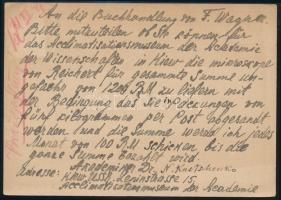 An die Buchhandlung von F. Wagner.
Bitte mitzuteilen ob Sie können für
das Acclimatisationsmuseum der Academie
der Wissenschaften in Kiew die microscope
von Reichert für gesammte Summe un-
gefaehr von 1200 RM zu liefern mit
der Bedingung das Sie in Packungen von
fünf Kilogrammen per Post abgesandt
werden und die Summe werde ich jedes
Monat von 100 RM schicken bis die
ganze Summe bezahlt wird.
Adresse: Akademiker Dr. N.
Kiew, USSR, Leninstrasse 15,
Acclimatisationsmuseum der Academie